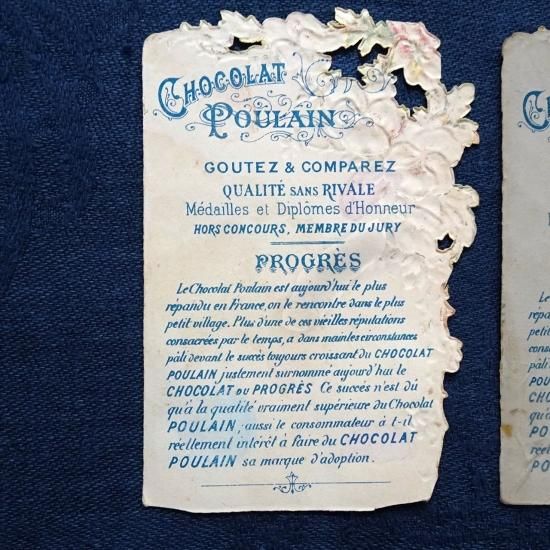 CHOCOLAT
POULAIN
GOUTEZ & COMPAREZ
QUALITÉ SANS RIVALE
Médailles et Diplômes d'Honneur
HORS CONCOURS, MEMBRE DU JURY
PROGRÈS
Le Chocolat Poulain est aujourd'hui le plus
répandu en France, on le rencontre dans le plus
petit village. Plus d'une de ces vieilles réputations
consacrées par le temps, a dans maintes circonstances
pâli devant le succès toujours croissant du CHOCOLAT
POULAIN justement surnommé aujourd'hui le
CHOCOLAT DU PROGRÈS Ce succès n'est dû
qu'à la qualité vraiment supérieure du Chocolat
POULAIN; aussi le consommateur à t-il
réellement intérêt à faire du CHOCOLAT
POULAIN sa marque d'adoption.